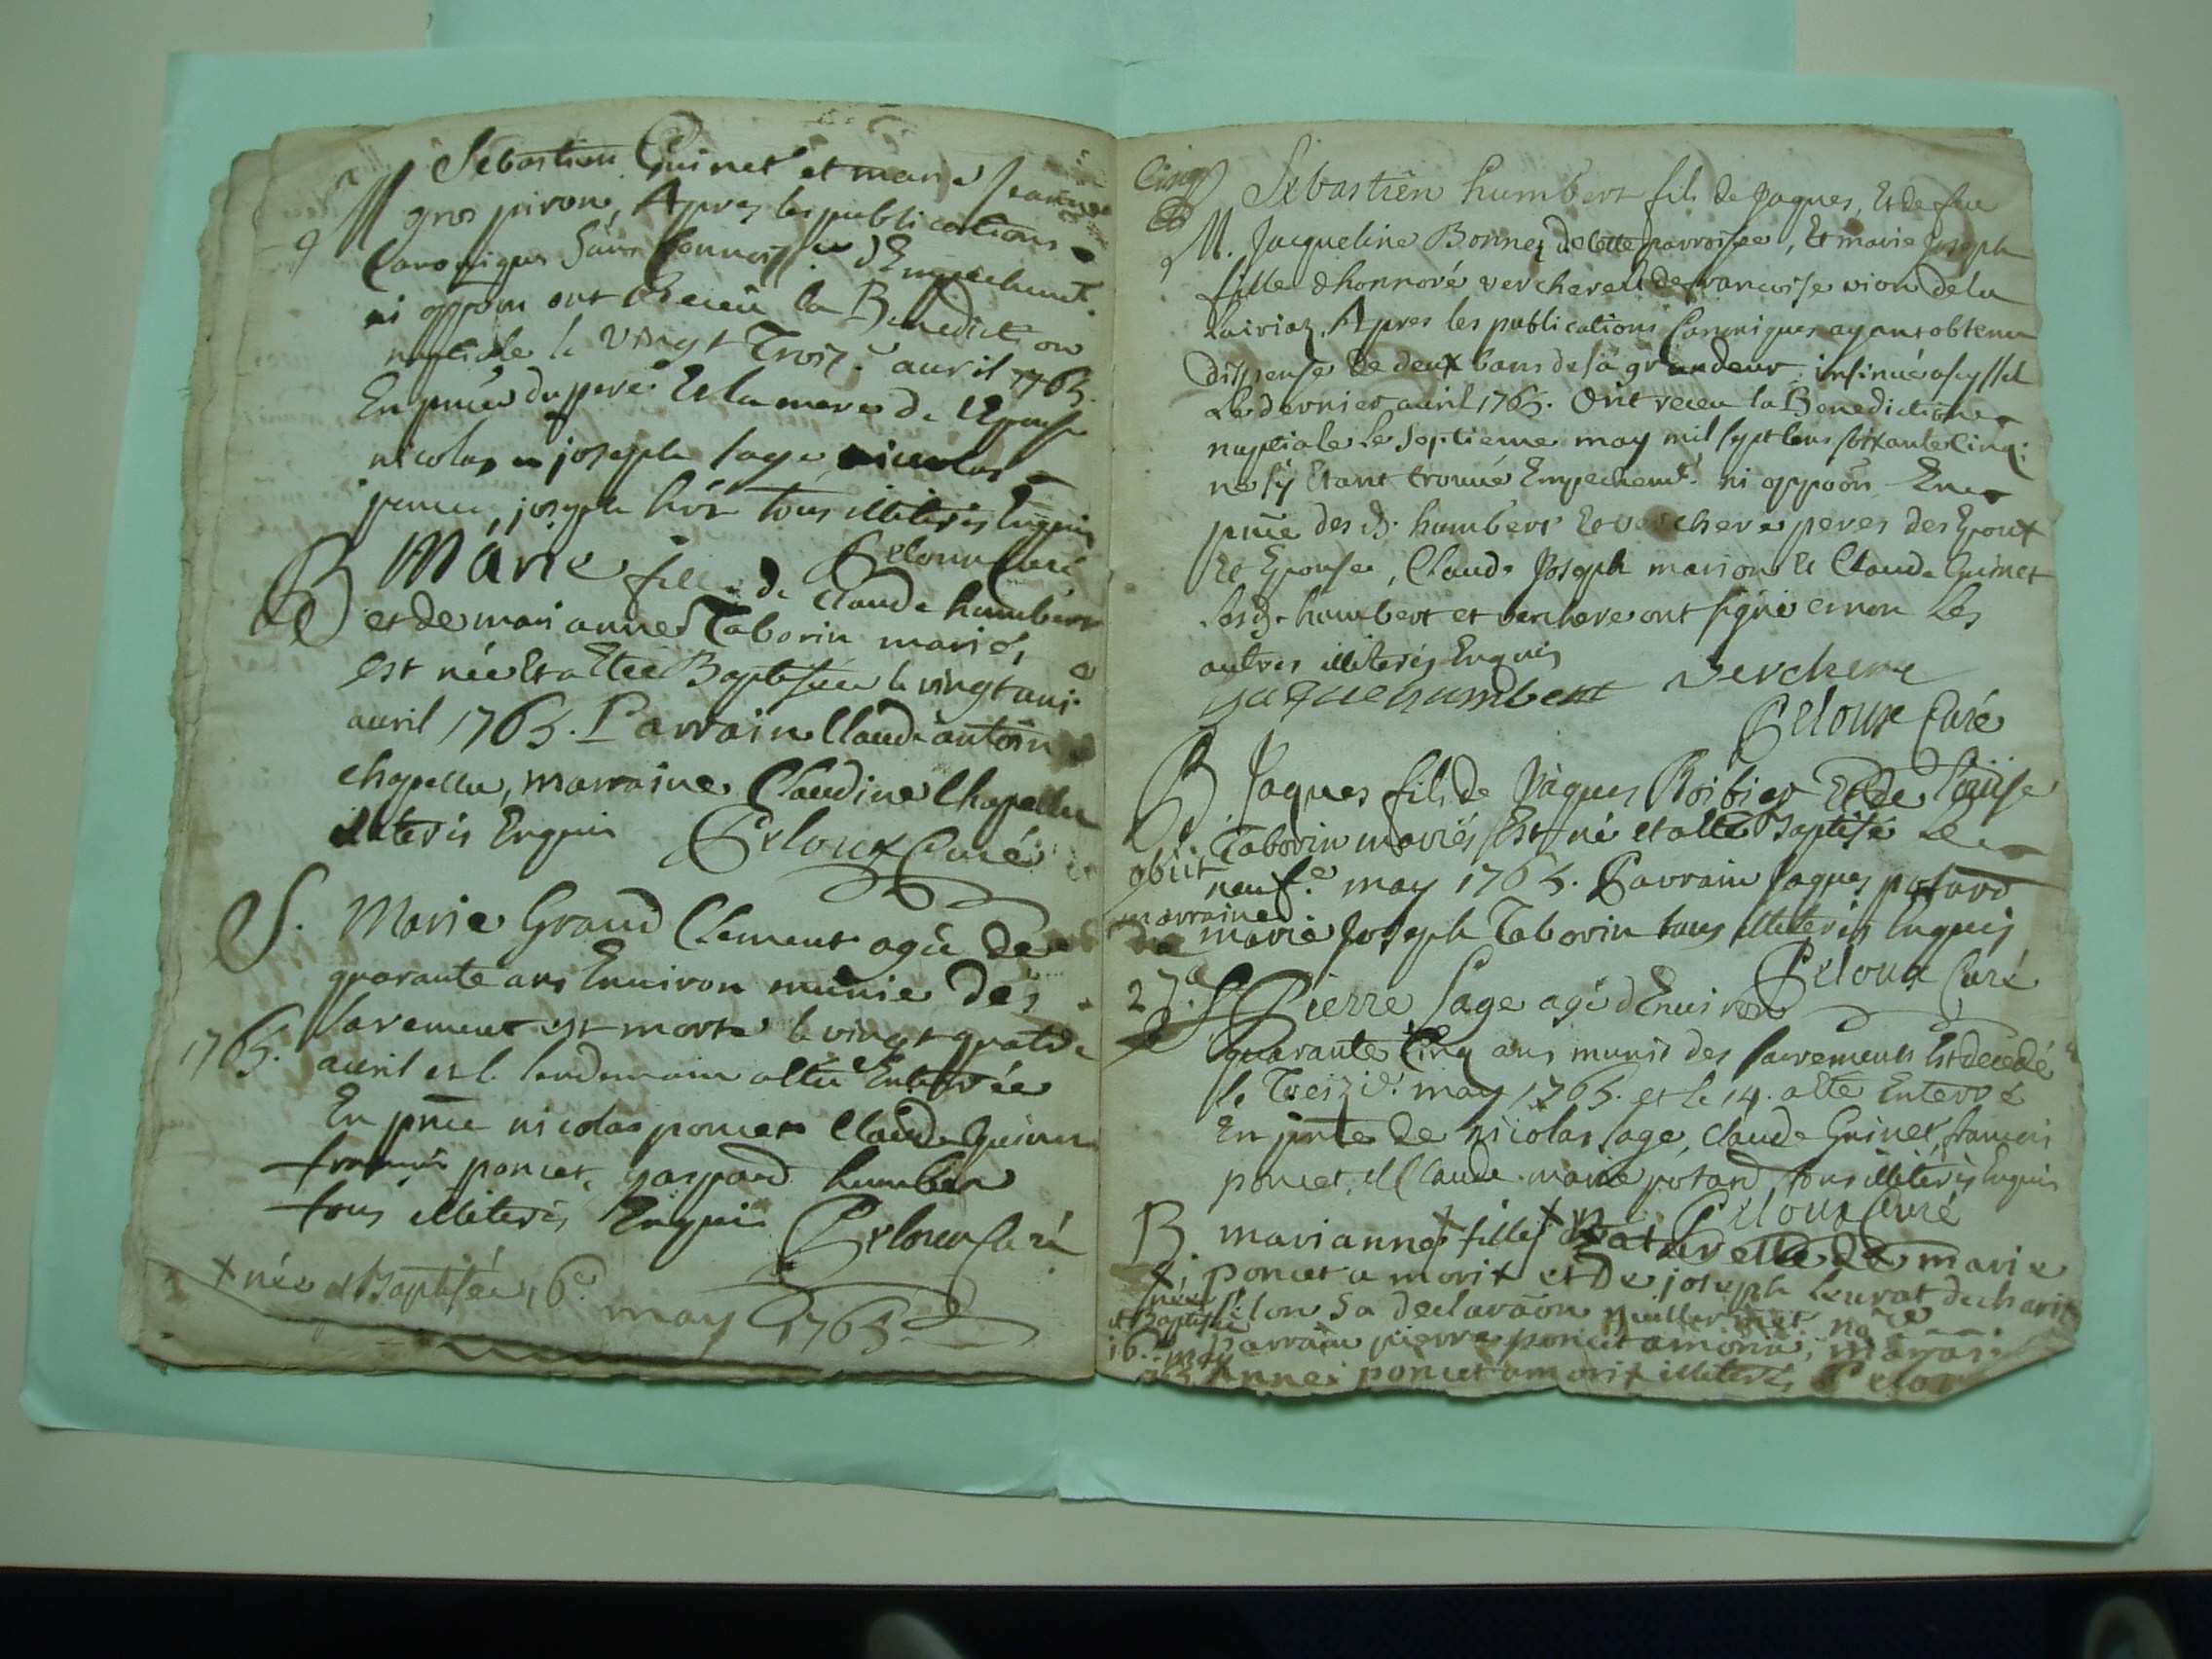 M Sebastien Guinet et marie Jeanne
gros piron, Apres les publications
Canoniques Sans Connoiss.ce d'Empechement
ni oppoon ont Receu la Benediction
nuptiale le vingt Trois.e auril 1765.
En pnce du pere Et la mere de l'Epouse
nicolas joseph sage nicolas
poncet, joseph tous illiterés Enquis
Peloux Curé
B Marie fille de Claude humbert
et de marianne Taborin mariés,
est née Et a Eteé Baptisée le vingt
auril 1765. Parrain Claude antoine
chapellu, marraine Claudine Chapellu
illiterés Enquis Peloux Curé
S. Marie Grand Clement agée de
quarante ans Enuiron munie des
sacrements est morte le vingt quatre
1765. auril et le lendemain a etée Enterrée
En pnce nicolas poncet Claude guinet
francois poncet, gaspard humbert
tous illiterés Enquis Peloux Curé
+ née et Baptisée, 16e
may 1765
Cinq
M. Sebastien humbert fils de Jaques, Et de feu
Jacqueline Bonnez de cette parroisse, Et marie Joseph
fille d'honnoré verchere Et de francoise vion de la
Apres les publications Canoniques ayant obtenu
dispense de deux bans de sa grandeur insinuée a seyssel
Le dernier auril 1765. Ont receu la Benediction
nuptiale le septieme may mil sept Cens soixante Cinq:
ne sÿ Etant trouué Empechemt. ni oppoon En
pnce des d. humbert Et verchere peres des Epoux
Et Epouse, Claude Joseph marion Et Claude Guinet
Les d. humbert et verchere ont signé et non Les
autres illiterés Enquis
jaque humbert verchere
Peloux Curé
B Jaques fils de Jaques Roibier Et de Loüise
Taborin mariés Est né et a eté Baptisé Le
obiit neuf.e may 1765. Parrain Jaques potard
marraine
marie Joseph Taborin tous illiterés Enquis
Peloux Curé
27. S Pierre sage agé d'Enuiron
quarante Cinq ans munis des sacrements Est decedé
le Treizie. may 1765. et le 14. a eté Enterré
En pnce de nicolas sage, Claude Guinet, francois
poncet, et Claude marie potard tous illiterés Enquis
Peloux Curé
B. marianne fille + naturelle de marie
poncet a morix et De joseph leurat de
+ née selon sa declaraon
et Baptisée parrain pierre poncet amorix,
16. may Anne poncet amorix illiterés